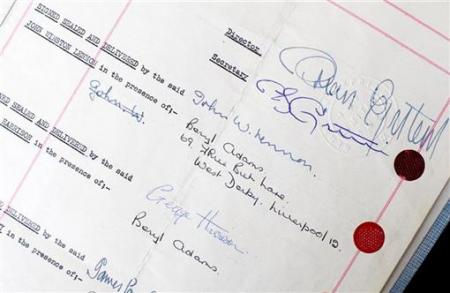 SIGNED SEALED AND DELIVERED by the said
JOHN WINSTON LENNON
in the presence of;-
Director
Secretary
John W. Lennon
Beryl Adams.
Lane.
West Derby, Liverpool 12.
NED SEALED AND DELIVERED by the said
HARRISON
in the presence of;-
George Harrison
Beryl Adams.
DELIVERED by the said
in the presence of;-
James Pa